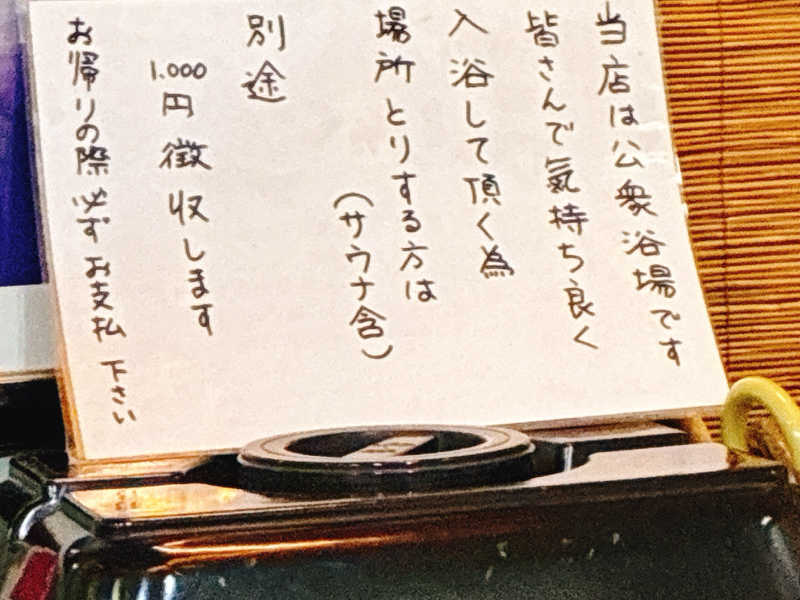 当店は公衆浴場です
皆さんで気持ち良く
入浴して頂く為
場所とりする方は
(サウナ含)
別途
1.000円徴収します
お帰りの際必ずお支払下さい